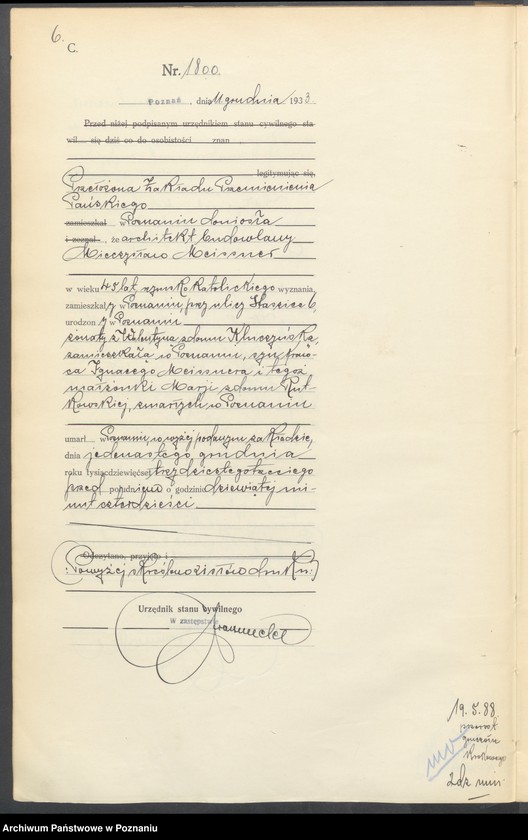 6.
C.
Nr. 1800.
Poznań, dnia 11 grudnia 1933.
Przed niżej podpisanym urzędnikiem stanu cywilnego sta
wił się dziś co do osobistości znan
legitymując się,
Przełożona Zakładu Przemienienia
Pańskiego
zamieszkał w Poznaniu doniosła
i zeznał, że architekt budowlany
Mieczysław Meissner
w wieku 45 lat, rzymsko katolickiego wyznania,
zamieszkały w Poznaniu, przy ulicy Staszica 6,
urodzony w Poznaniu
żonaty z Walentyną z domu Kluczyńską,
zamieszkałą w Poznaniu, syn praw-
ca Ignacego Meissnera i tegoż
małżonki Marji z domu Rut-
kowskiej, zmarłych w Poznaniu
umarł w Poznaniu, w wyżej podanym zakładzie,
dnia jedenastego grudnia
roku tysiącdziewięćset trzydziestegotrzeciego
przed południem o godzinie dziewiątej mi-
nut czterdzieści.
Odczytano, przyjęto i
(Powyżej skreślono zisłów druku.)
Urzędnik stanu cywilnego
W zastępstwie
19.5.88
2 dz
Archiwum Państwowe w Poznaniu